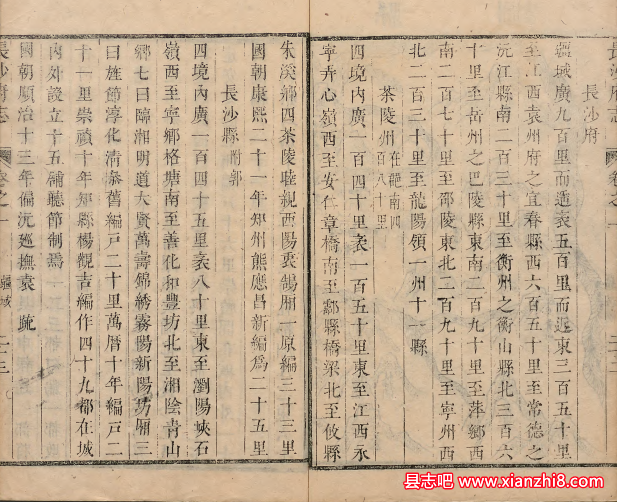 長沙府
疆域廣九百里而遥袤五百里而近東三百五十里
至江西袁州府之宜春縣西六百五十里至常德之
沅江縣南二百三十里至衡州之衡山縣北三百六
十里至岳州之巴陵縣東南二百九十里至萍鄉西
南二百六十里至邵陵東北二百九十里至寧州西
北二百三十里至龍陽領一州十一縣
茶陵州 在範南四百八十里
四境内廣一百四十里袤一百五十里東至江西永
寧弁心嶺西至安仁章橋南至酃縣橋梁北至攸縣
朱溪鄉四茶陵睦親西陽衷鵠厢一原編三十三里
國朝康熙二十一年知州熊應昌新編爲二十五里
長沙縣 附郭
四境内廣一百四十五里袤八十里東至瀏陽峽石
嶺西至寧鄉格塘南至善化拟豐坊北至湘陰青山
鄉七曰臨湘明道大賢萬壽錦綉霧陽新陽坊厢三
曰旌節淳化清泰舊編戸二十里萬曆十年編戸二
十一里崇禎十年知縣楊觀吉編作四十九都在城
内外設立十五鋪聽節制焉
國朝順治十三年偏沅廵撫袁 疏
長沙府志
卷之一
疆域
二三
县志吧 www.xianzhi8.com